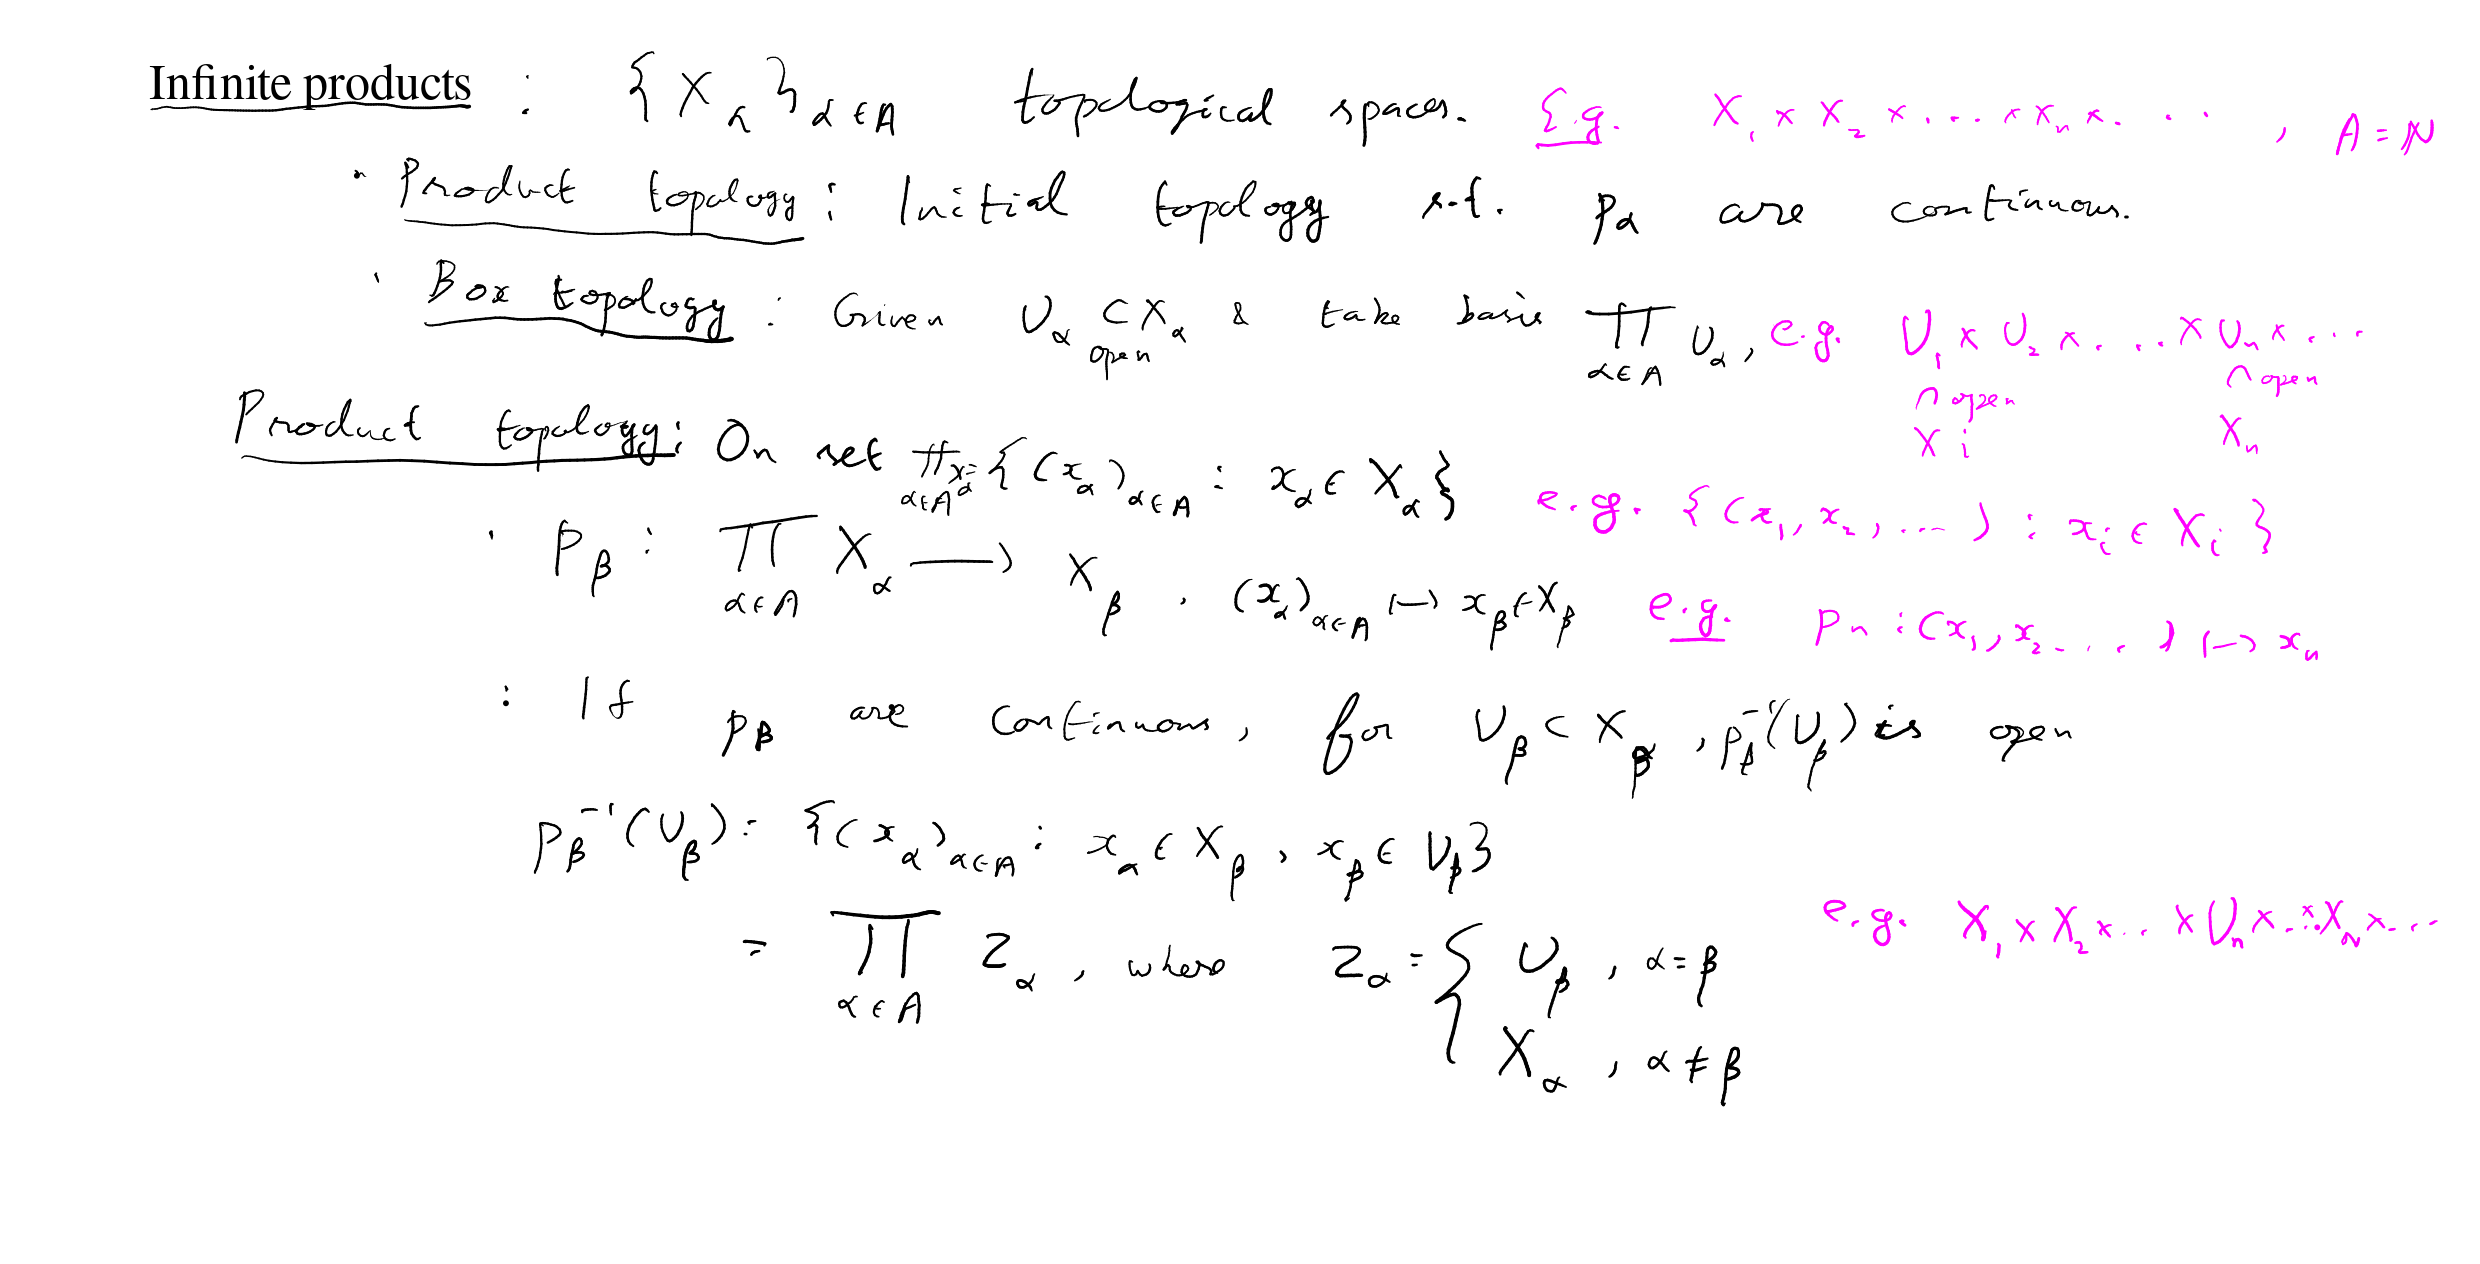 Infinite products : {X_α}_{α∈A} topological spaces. E.g. X_1 × X_2 × ... × X_n × ... , A = ℕ
· Product topology : Initial topology s.t. p_α are continuous.
· Box topology : Given U_α ⊂ X_α & take basis ∏ U_α , e.g. U_1 × U_2 × ... × U_n × ...
open α∈A ∩ open ∩ open
X_i X_n
Product topology : On set ∏_{α∈A} X_α = {(x_α)_{α∈A} : x_α ∈ X_α} e.g. {(x_1, x_2, ...) : x_i ∈ X_i}
· p_β : ∏_{α∈A} X_α → X_β , (x_α)_{α∈A} ↦ x_β ∈ X_β e.g. p_n : (x_1, x_2 ...) ↦ x_n
: If p_β are continuous, for U_β ⊂ X_β , p_β^{-1}(U_β) is open
p_β^{-1}(U_β) = {(x_α)_{α∈A} : x_α ∈ X_β , x_β ∈ U_β}
= ∏_{α∈A} Z_α , where Z_α = { U_β , α = β e.g. X_1 × X_2 × .. × U_n × ... × X_N × ...
X_α , α ≠ β